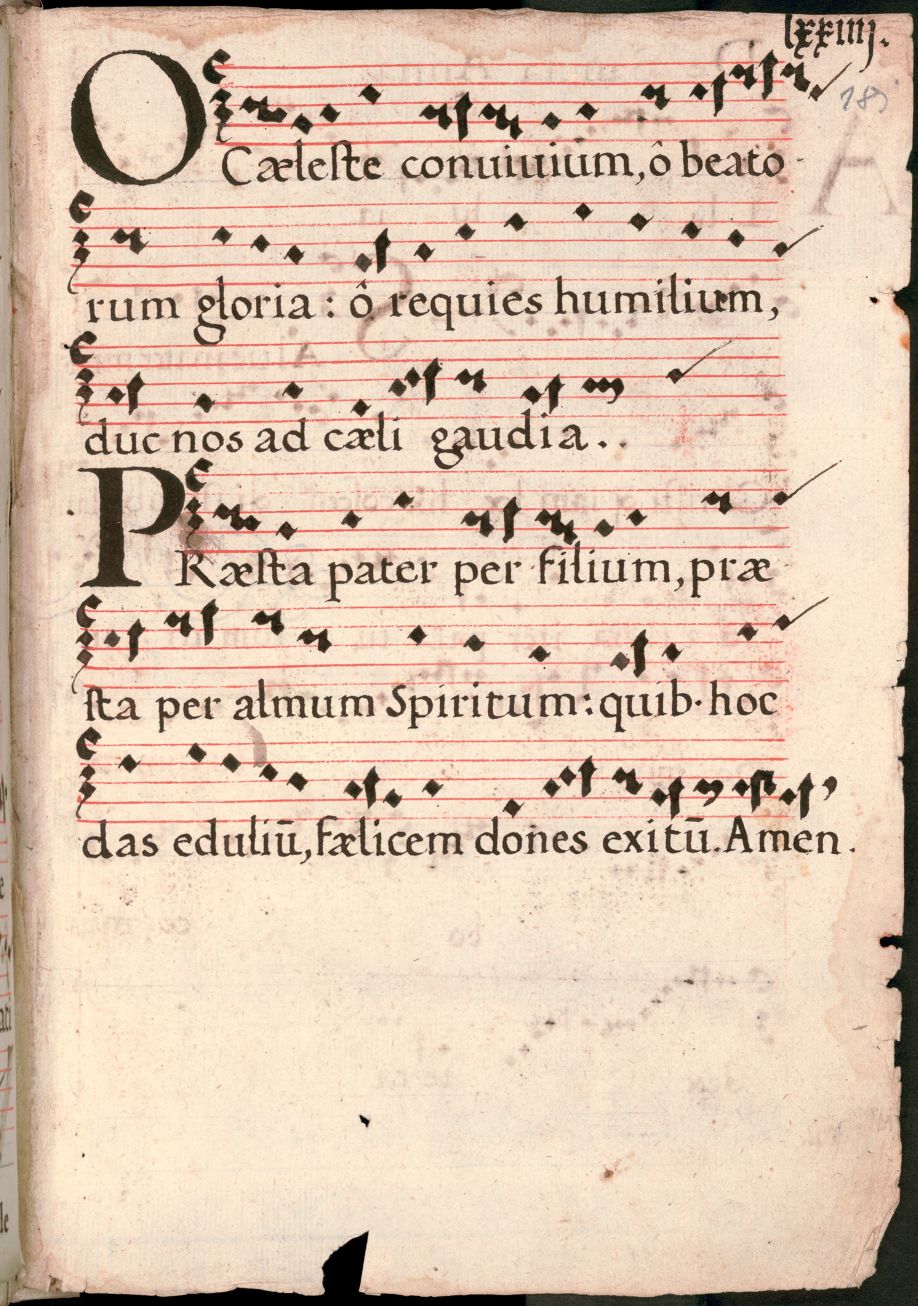 lxxiiij.
185
O Cæleste conuiuium, ô beato
rum gloria: ô requies humilium,
duc nos ad cæli gaudia..
PRæsta pater per filium, præ
sta per almum Spiritum: quib. hoc
das eduliū, fælicem dones exitū. Amen.